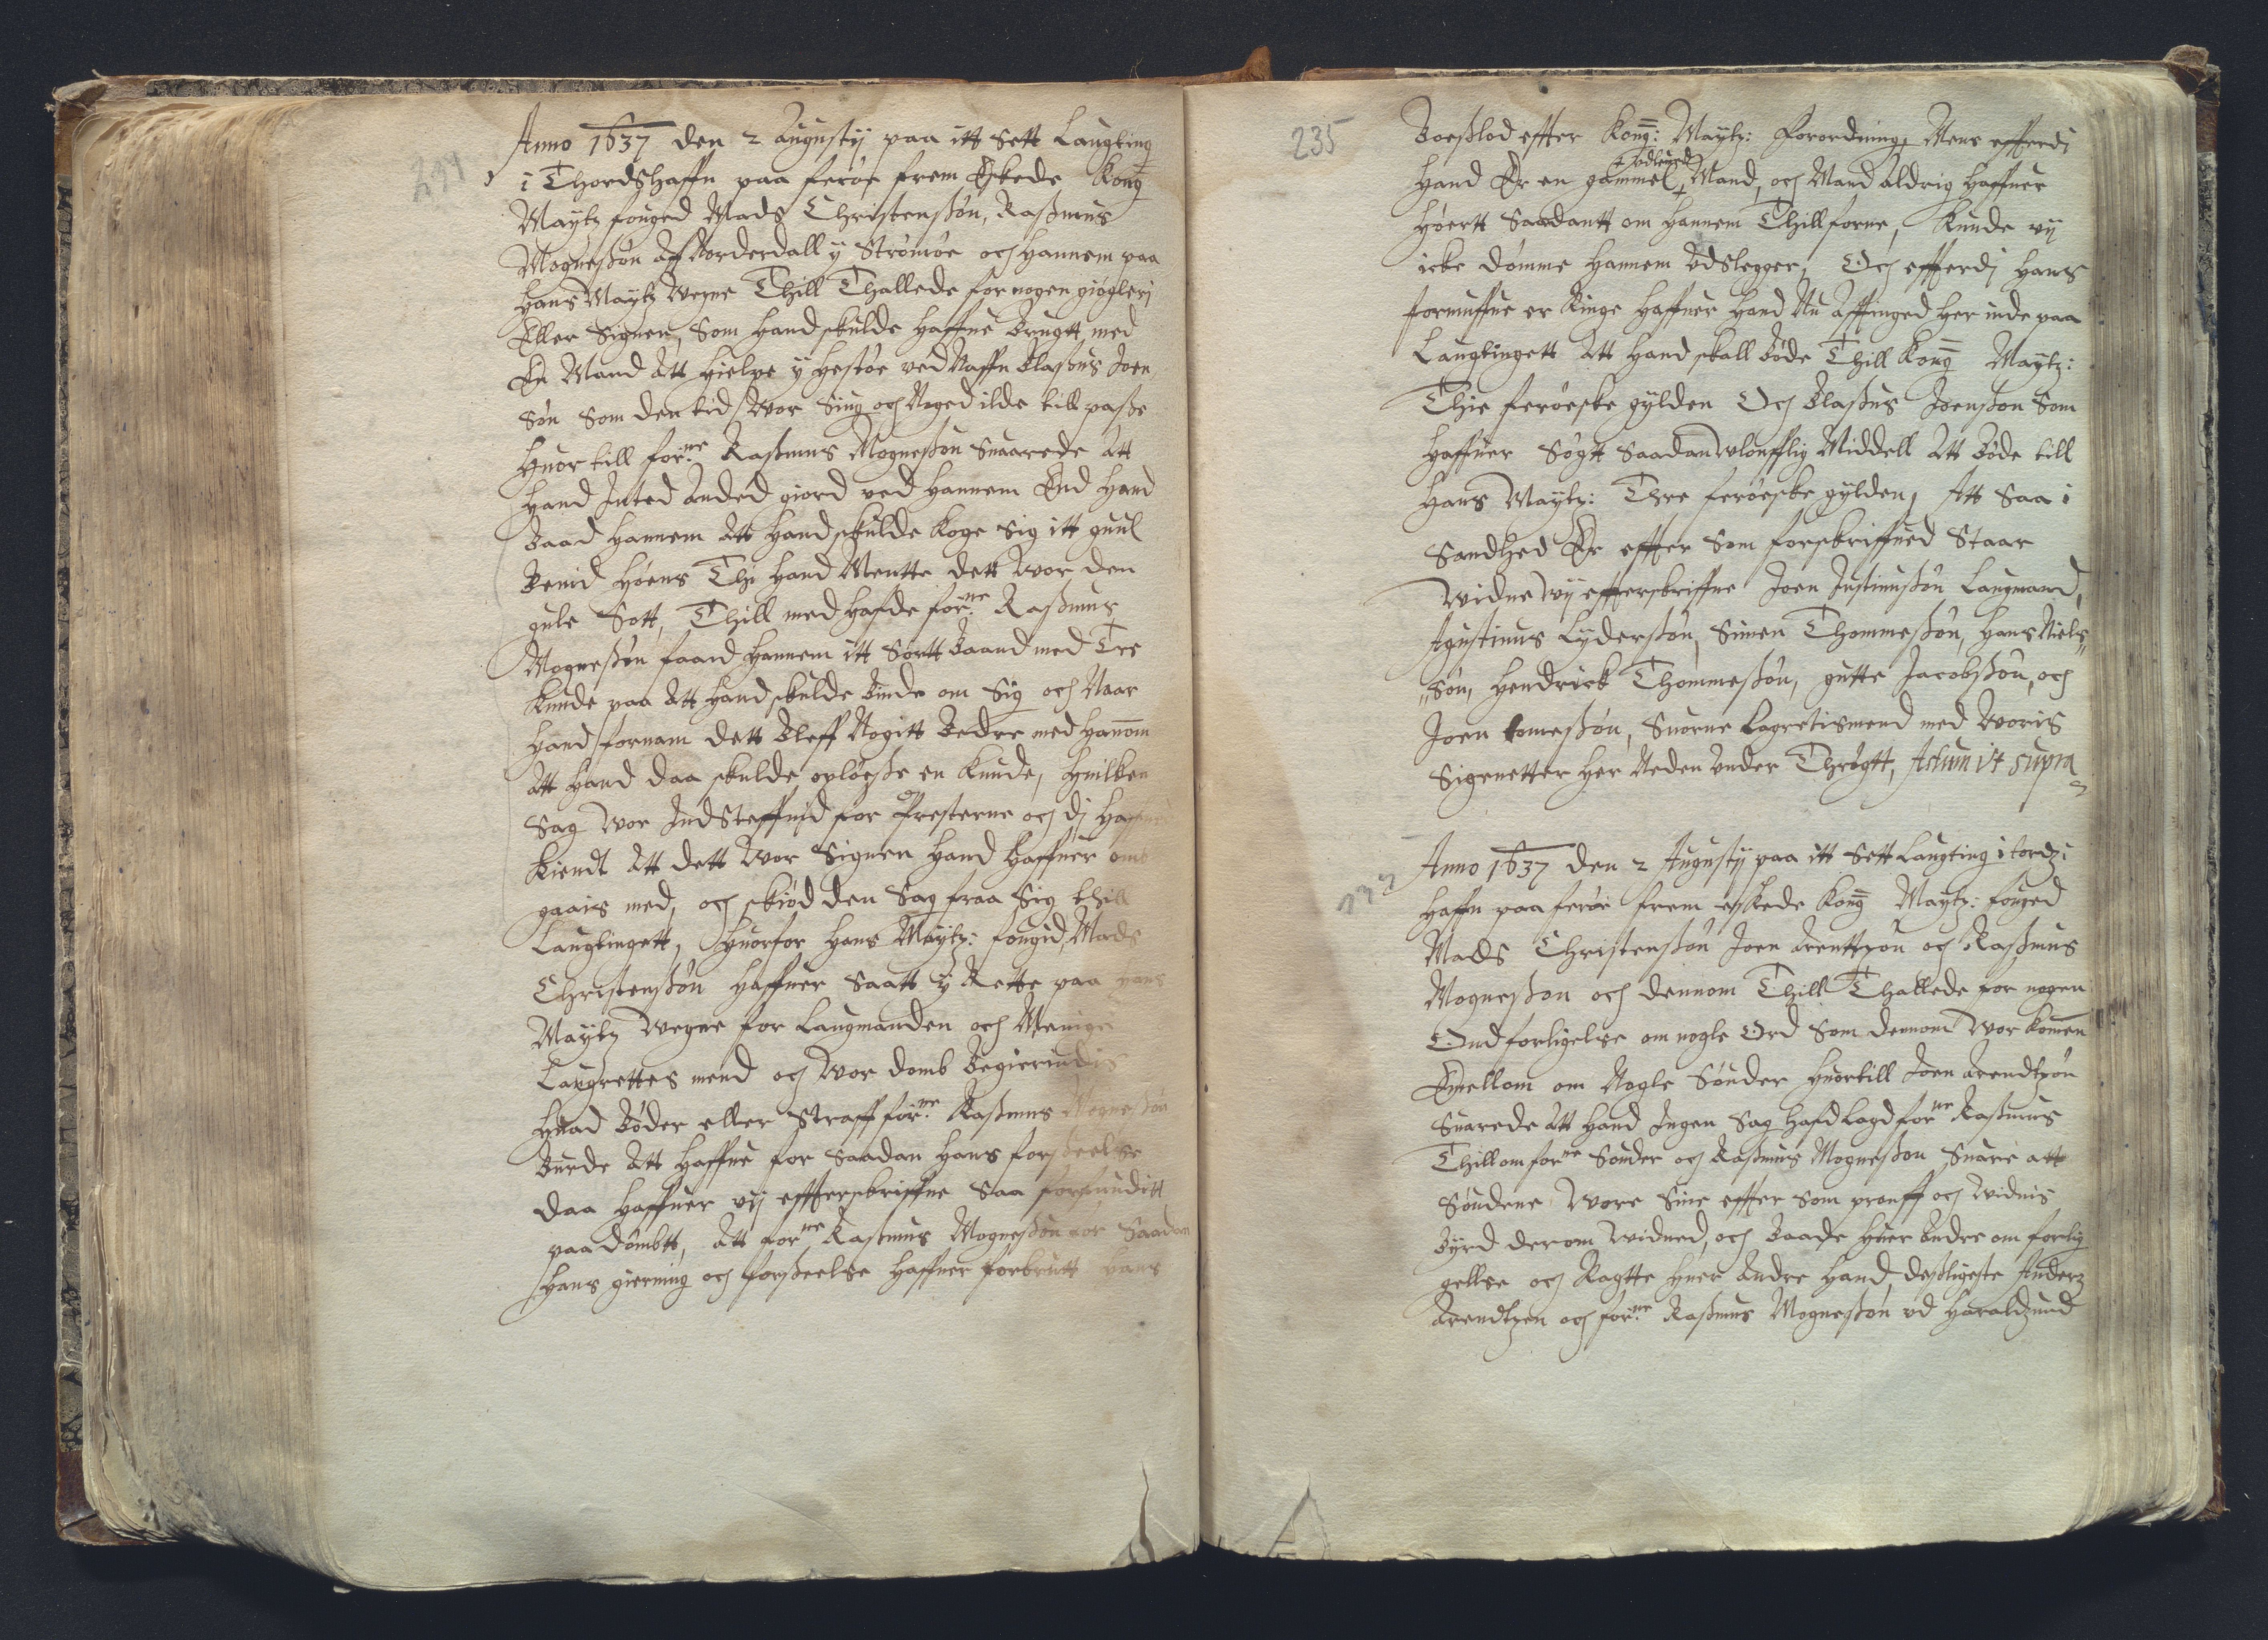 Anno 1637 den 2 Augustij paa itt Sett Laugting
i Thordshaffn paa ferøe frem Eskede Kong
Maytz fouged Mads Christensøn, Rasmus
Mognesøn aff Norderdall y Strømøe och hannem paa
hans Maytz Vegne Thill Thallede for nogen gøgleri
Eller Signen, Som hand skulde haffue Brugtt med
En Mand Att hielpe y Hestøe ved Naffn Clasus Joen
søn Som den tid Wor Siug och Noged ilde till passe
Huor till forne Rasmus Mognesøn Suarede Att
hand Inted anded giord ved hannem End hand
Baad hannem Att hand skulde koge Sig itt guul
Benid Høens Thi hand Mentte dett Wor den
gule Sott, Thill med hafde forne Rasmus
Mognesøn faaed hannem itt Sortt Baand med Tre
knude paa Att hand skulde Binde om Sig och Naar
hand fornam dett Bleff Nogitt Bedre med hannom
Att hand daa skulde opløese en knude, Huilken
Sag Wor Indsteffnid for Presterne och di haffuer
kiendt Att dett Wor Signen hand haffuer om
gaais med, och skiød den Sag fraa Sig thill
Laugtingett, Huorfor hans Maytz: fougid Mads
Christensøn haffuer Saatt y Rette paa hans
Maytz Vegne for Laugmanden och Menige
Laugrettes mend och Wor domb Begierindis
Huad Bøder eller Straff forne Rasmus Mognesøn
Burde Att haffue for Saadan hans forseelse
daa haffuer vij effterskriffne Saa forfunditt
paa dømbtt, Att forne Rasmus Mognesøn for Saadan
hans gierning och forseelse haffuer forbrutt hans
235
Boeslod effter Kong: Maytz: Forordning, Mens efferdi
hand Er en gammel + udleued Mand, och Mand aldrig haffuer
høertt Saadantt om hannem Thillforne, kunde vij
icke dømme hannem Udslegger, Och efferdi hans
formuffue er Ringe haffuer hand Nu Affinged her inde paa
Laugtingett Att hand skall Bøde Thill Kong Maytz:
Thie ferøeske gylden Och Clasus Joensøn Som
haffuer Søgtt Saadan Wlouflig Middell Att Bøde till
Hans Maytz: Thre ferøeske gylden, Att Saa i
Sandhed Er effter Som forskriffued Staar
Widne Wij effterskriffne Joen Justinusøn Laugmand,
Agustinus Lydersøn, Simen Thommesøn, Hans Niels
søn, Hendrick Thommesøn, gutte Jacobsøn, och
Joen tomesøn, Suorne Lagretismend med Woris
Signetter her Neden Under Thrøgtt, Actum ut supra
Anno 1637 den 2 Augustij paa itt Sett Laugting i tordz
haffn paa ferøe frem eskede Kong Maytz: fouged
Mads Christensøn Joen Arenttzøn och Rasmus
Mognesøn och dennom Thill Thallede for nogen
Ond forligelse om nogle Ord Som dennom Wor komen
Emellom om Nogle Sønder Huortill Joen Arendtzøn
Suarede Att hand Ingen Sag hafd lagd forne Rasmus
Thill om forne Sønder och Rasmus Mognesøn Suare att
Søndene Wore Sine effter Som prouff och Widnis
Byrd derom Widned, och Baade huer Andre om forlig
gellse och Ragtte huer Andre hand, desligeste Anders
Arendtzen och forne Rasmus Mognesøn ud Haraldzund